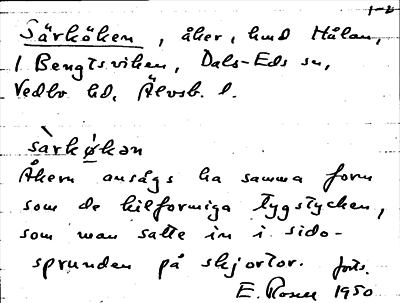 1-2
Särköken, åker, hmd Hålan,
1 Bengtsviken, Dals-Eds sn,
Vedbo hd, Älvsb. l.
sàrkǿkən
Åkern ansågs ha samma form
som de kilformiga tygstycken,
som man satte in i sido-
sprunden på skjortor. forts.
E. Rosell 1950